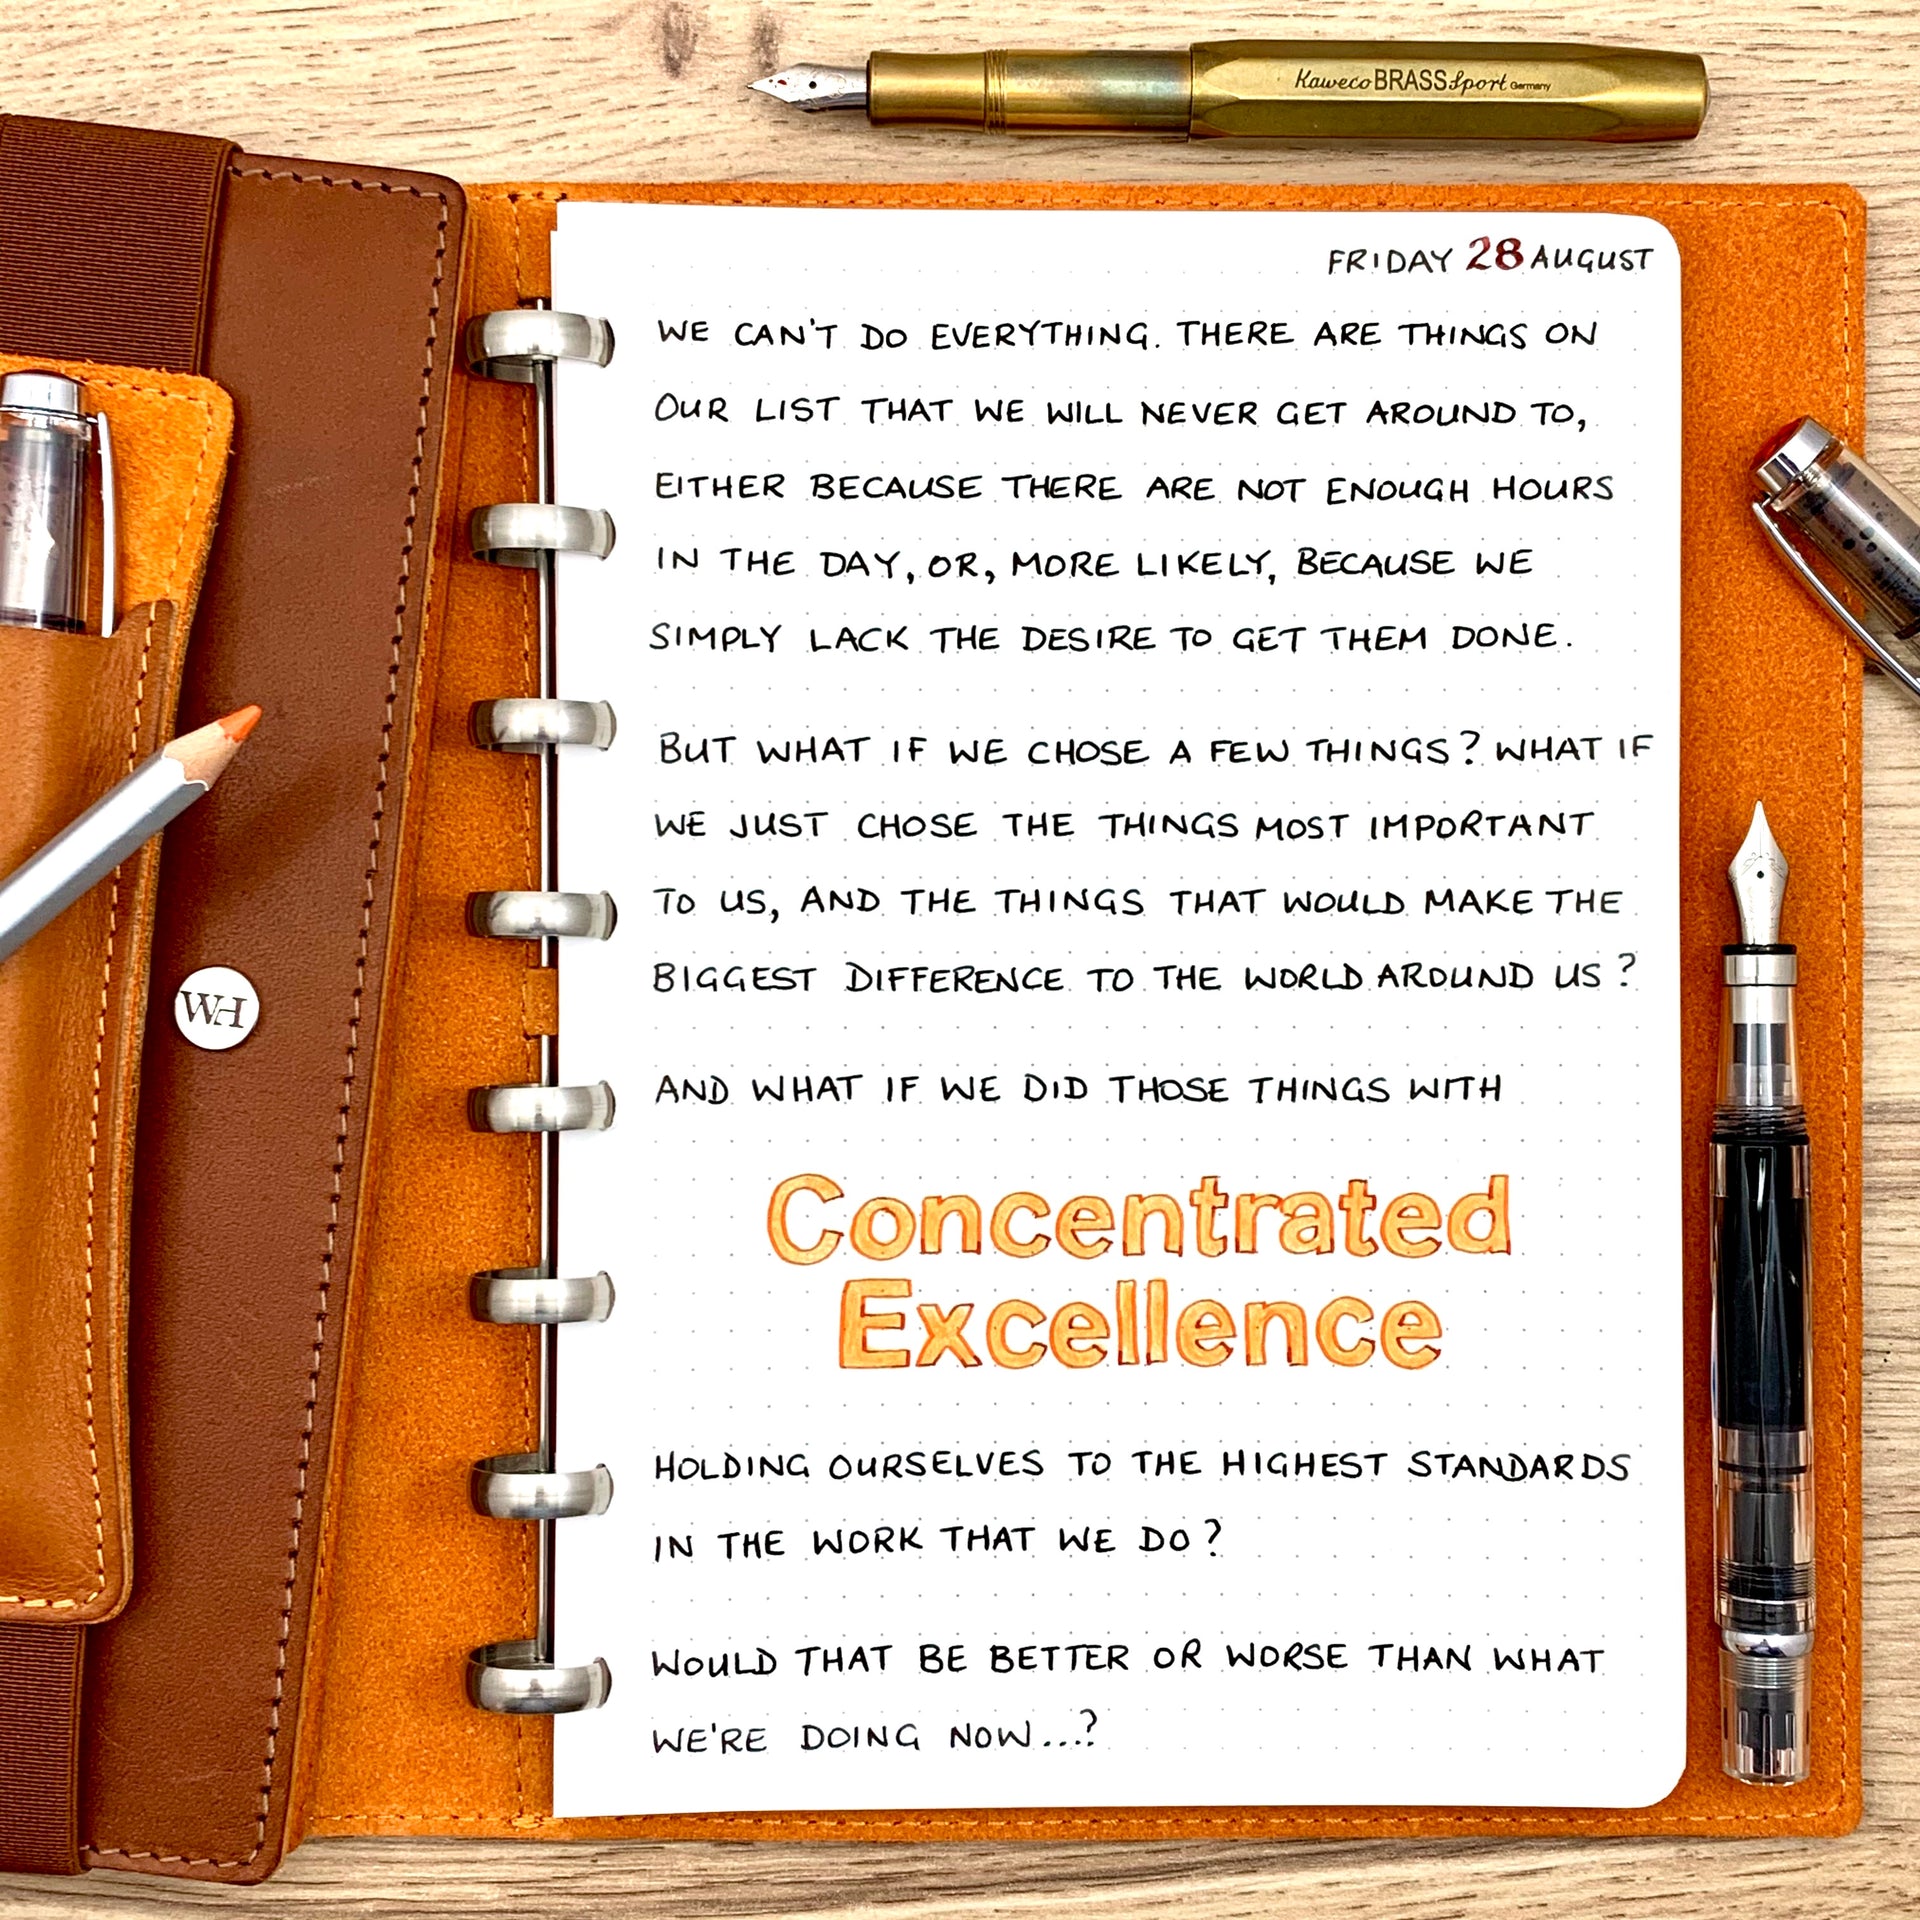 Kaweco BRASS Sport Germany
FRIDAY 28 AUGUST
WE CAN'T DO EVERYTHING. THERE ARE THINGS ON
OUR LIST THAT WE WILL NEVER GET AROUND TO,
EITHER BECAUSE THERE ARE NOT ENOUGH HOURS
IN THE DAY, OR, MORE LIKELY, BECAUSE WE
SIMPLY LACK THE DESIRE TO GET THEM DONE.
BUT WHAT IF WE CHOSE A FEW THINGS? WHAT IF
WE JUST CHOSE THE THINGS MOST IMPORTANT
TO US, AND THE THINGS THAT WOULD MAKE THE
BIGGEST DIFFERENCE TO THE WORLD AROUND US?
AND WHAT IF WE DID THOSE THINGS WITH
Concentrated
Excellence
HOLDING OURSELVES TO THE HIGHEST STANDARDS
IN THE WORK THAT WE DO?
WOULD THAT BE BETTER OR WORSE THAN WHAT
WE'RE DOING NOW...?
WH